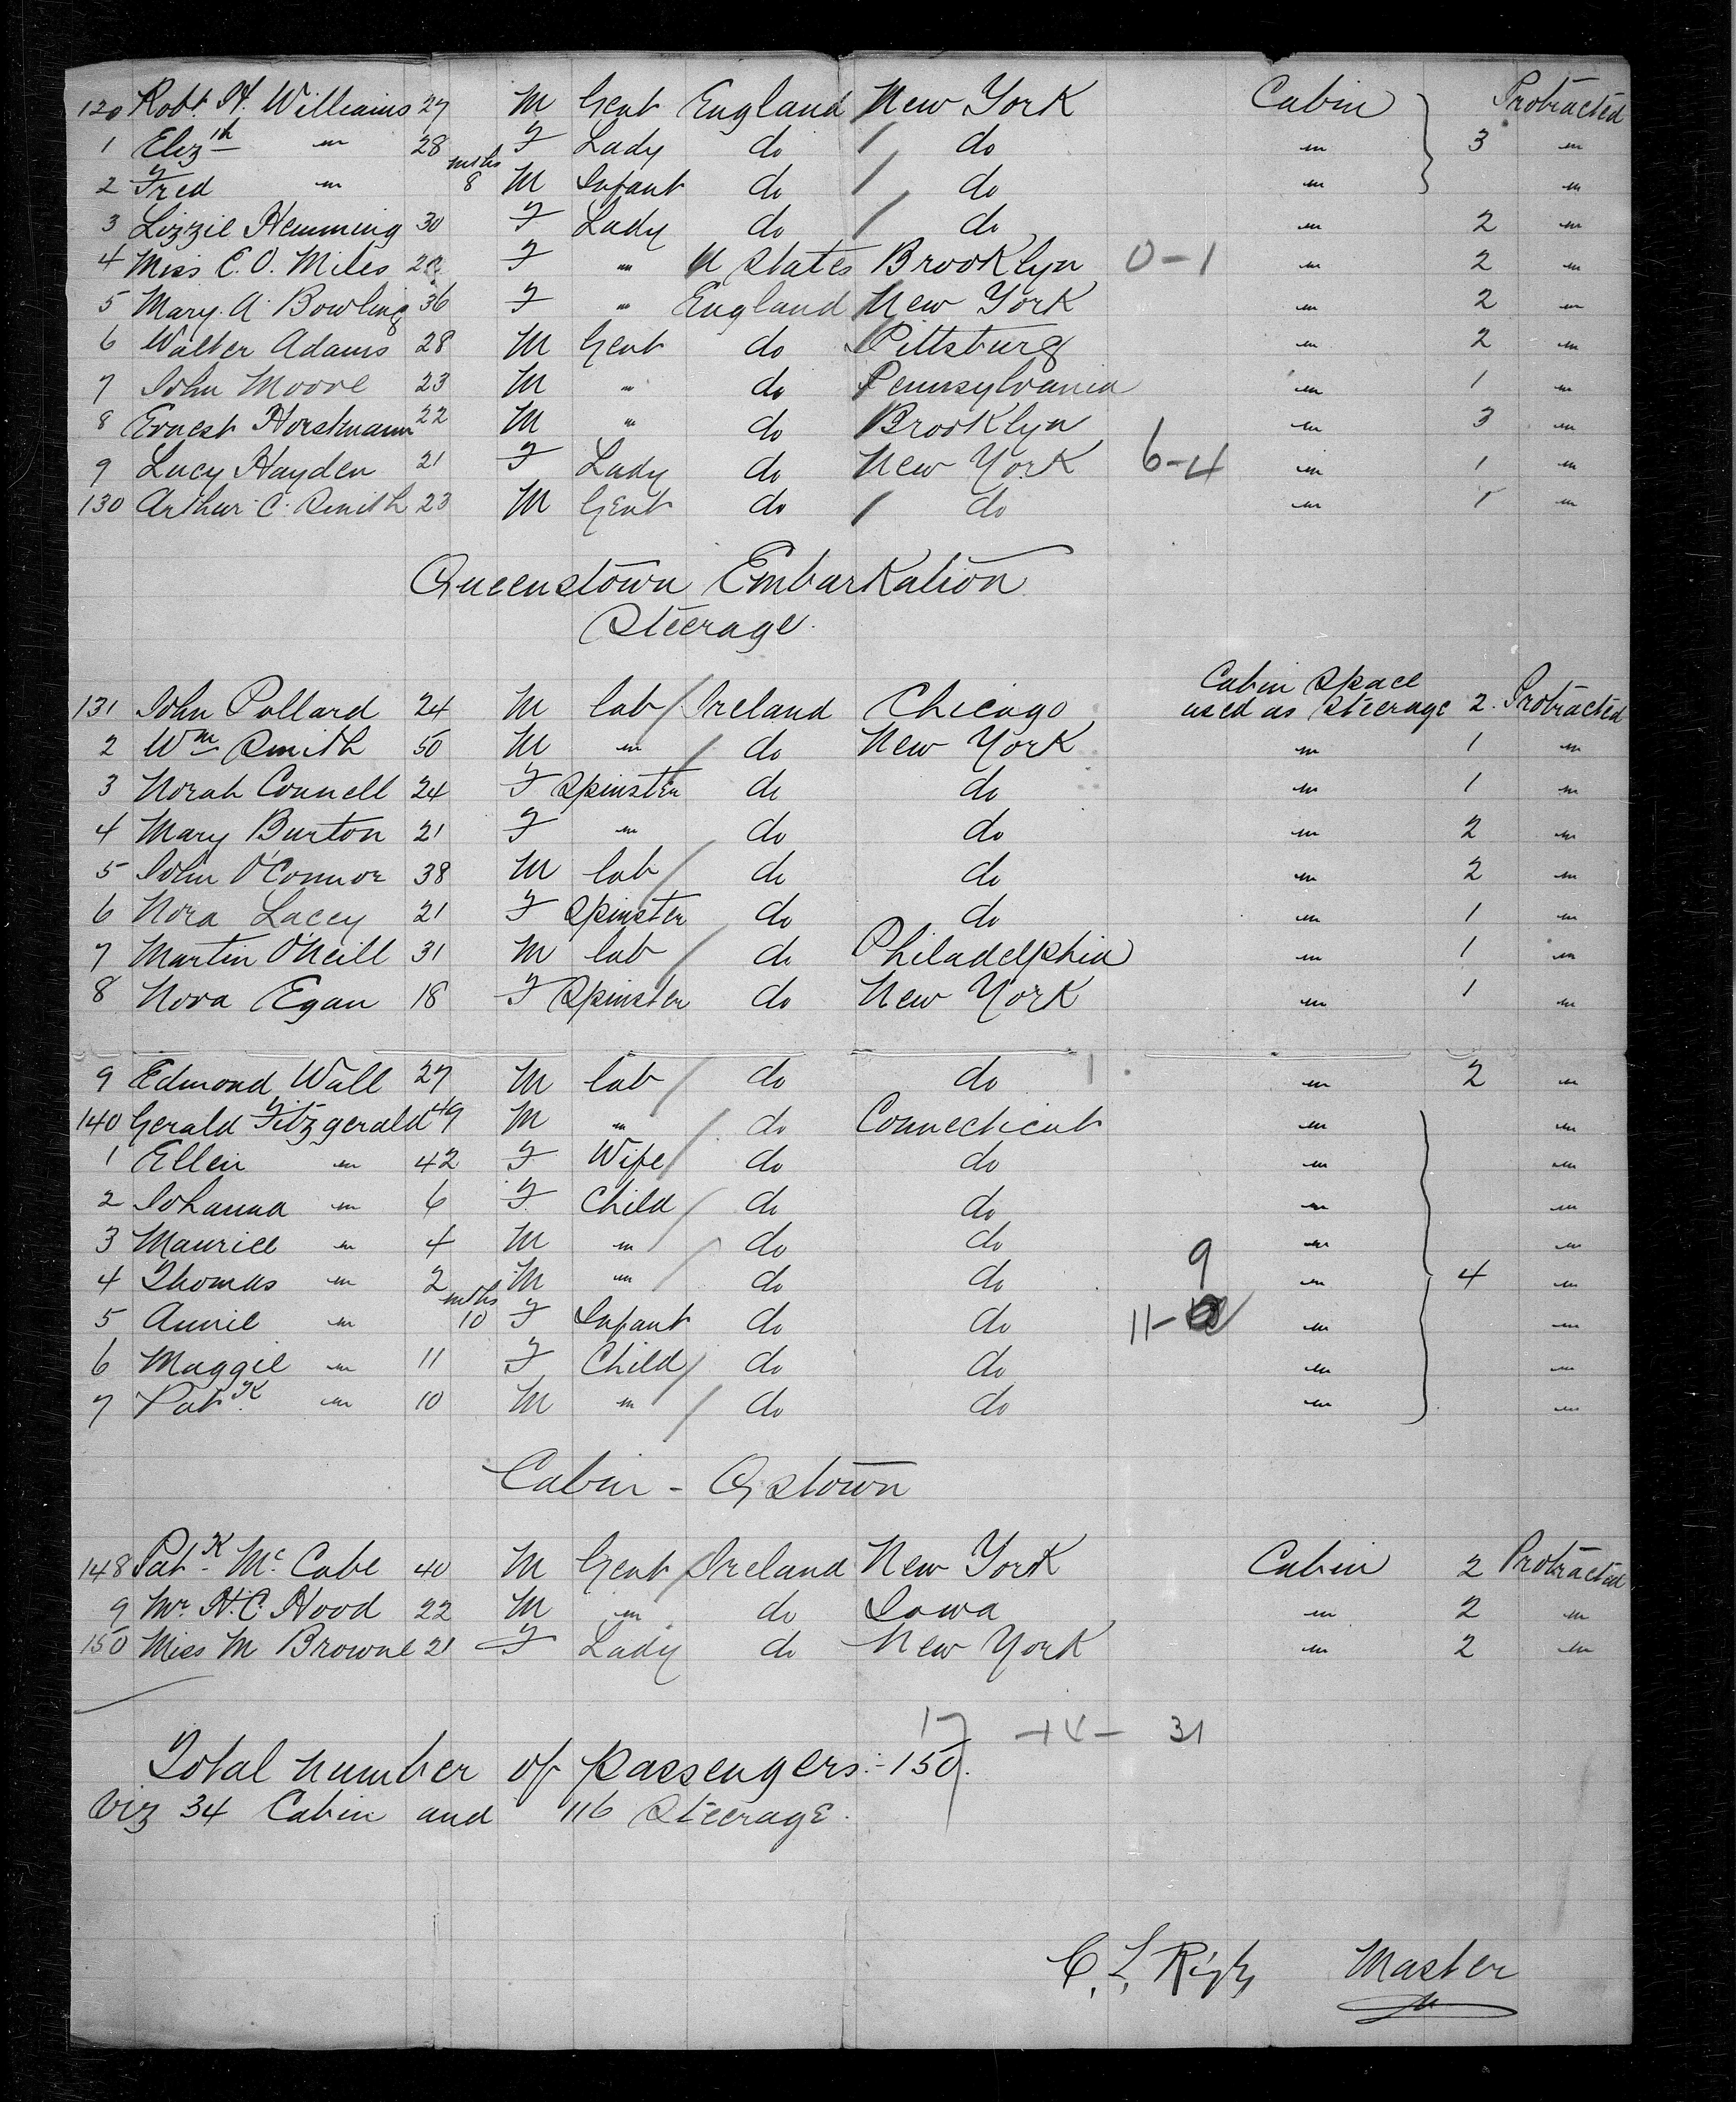 120 Robt. H. Williams 27 M Gent England New York Cabin Protracted
1 Elizth " 28 F Lady do do " 3 "
2 Fred " mths 8 M Infant do do " "
3 Lizzie Hemming 30 F Lady do do " 2 "
4 Miss E. O. Miles F " U States Brooklyn 0-1 " 2 "
5 Mary. A. Bowling 36 F " England New York " 2 "
6 Walter Adams 28 M Gent do Pittsburg " 2 "
7 John Moore 23 M " do Pennsylvania " 1 "
8 Ernest Horstmann 22 M " do Brooklyn " 3 "
9 Lucy Hayden 21 F Lady do New York 6-4 " 1 "
130 Arthur C. Smith 23 M Gent do do " 1 "
Queenstown Embarkation
Steerage.
131 John Pollard 24 M lab Ireland Chicago Cabin Space used as Steerage 2. Protracted
2 Wm Smith 50 M " do New York " 1 "
3 Norah Connell 24 F Spinster do do " 1 "
4 Mary Burton 21 F " do do " 2 "
5 John O'Connor 38 M lab do do " 2 "
6 Nora Lacey 21 F Spinster do do " 1 "
7 Martin O'Neill 31 M lab do Philadelphia " 1 "
8 Nora Egan 18 F Spinster do New York " 1 "
9 Edmond Wall 27 M lab do do " 2 "
140 Gerald Fitzgerald 49 M " do Connecticut " "
1 Ellen " 42 F Wife do do " "
2 Johanna " 6 F Child do do " "
3 Maurice " 4 M " do do " "
4 Thomas " 2 M " do do 9 " 4 "
5 Annie " mths 10 F Infant do do 11- " "
6 Maggie " 11 F Child do do " "
7 Patk " 10 M " do do " "
Cabin - Qstown
148 Patk Mc Cabe 40 M Gent Ireland New York Cabin 2 Protracted
9 Mr. H. C. Hood 22 M " do Iowa " 2 "
150 Miss M Browne 21 F Lady do New York " 2 "
17 -14- 31
Total number of passengers :- 150.
Viz 34 Cabin and 116 Steerage.
C. L. Master